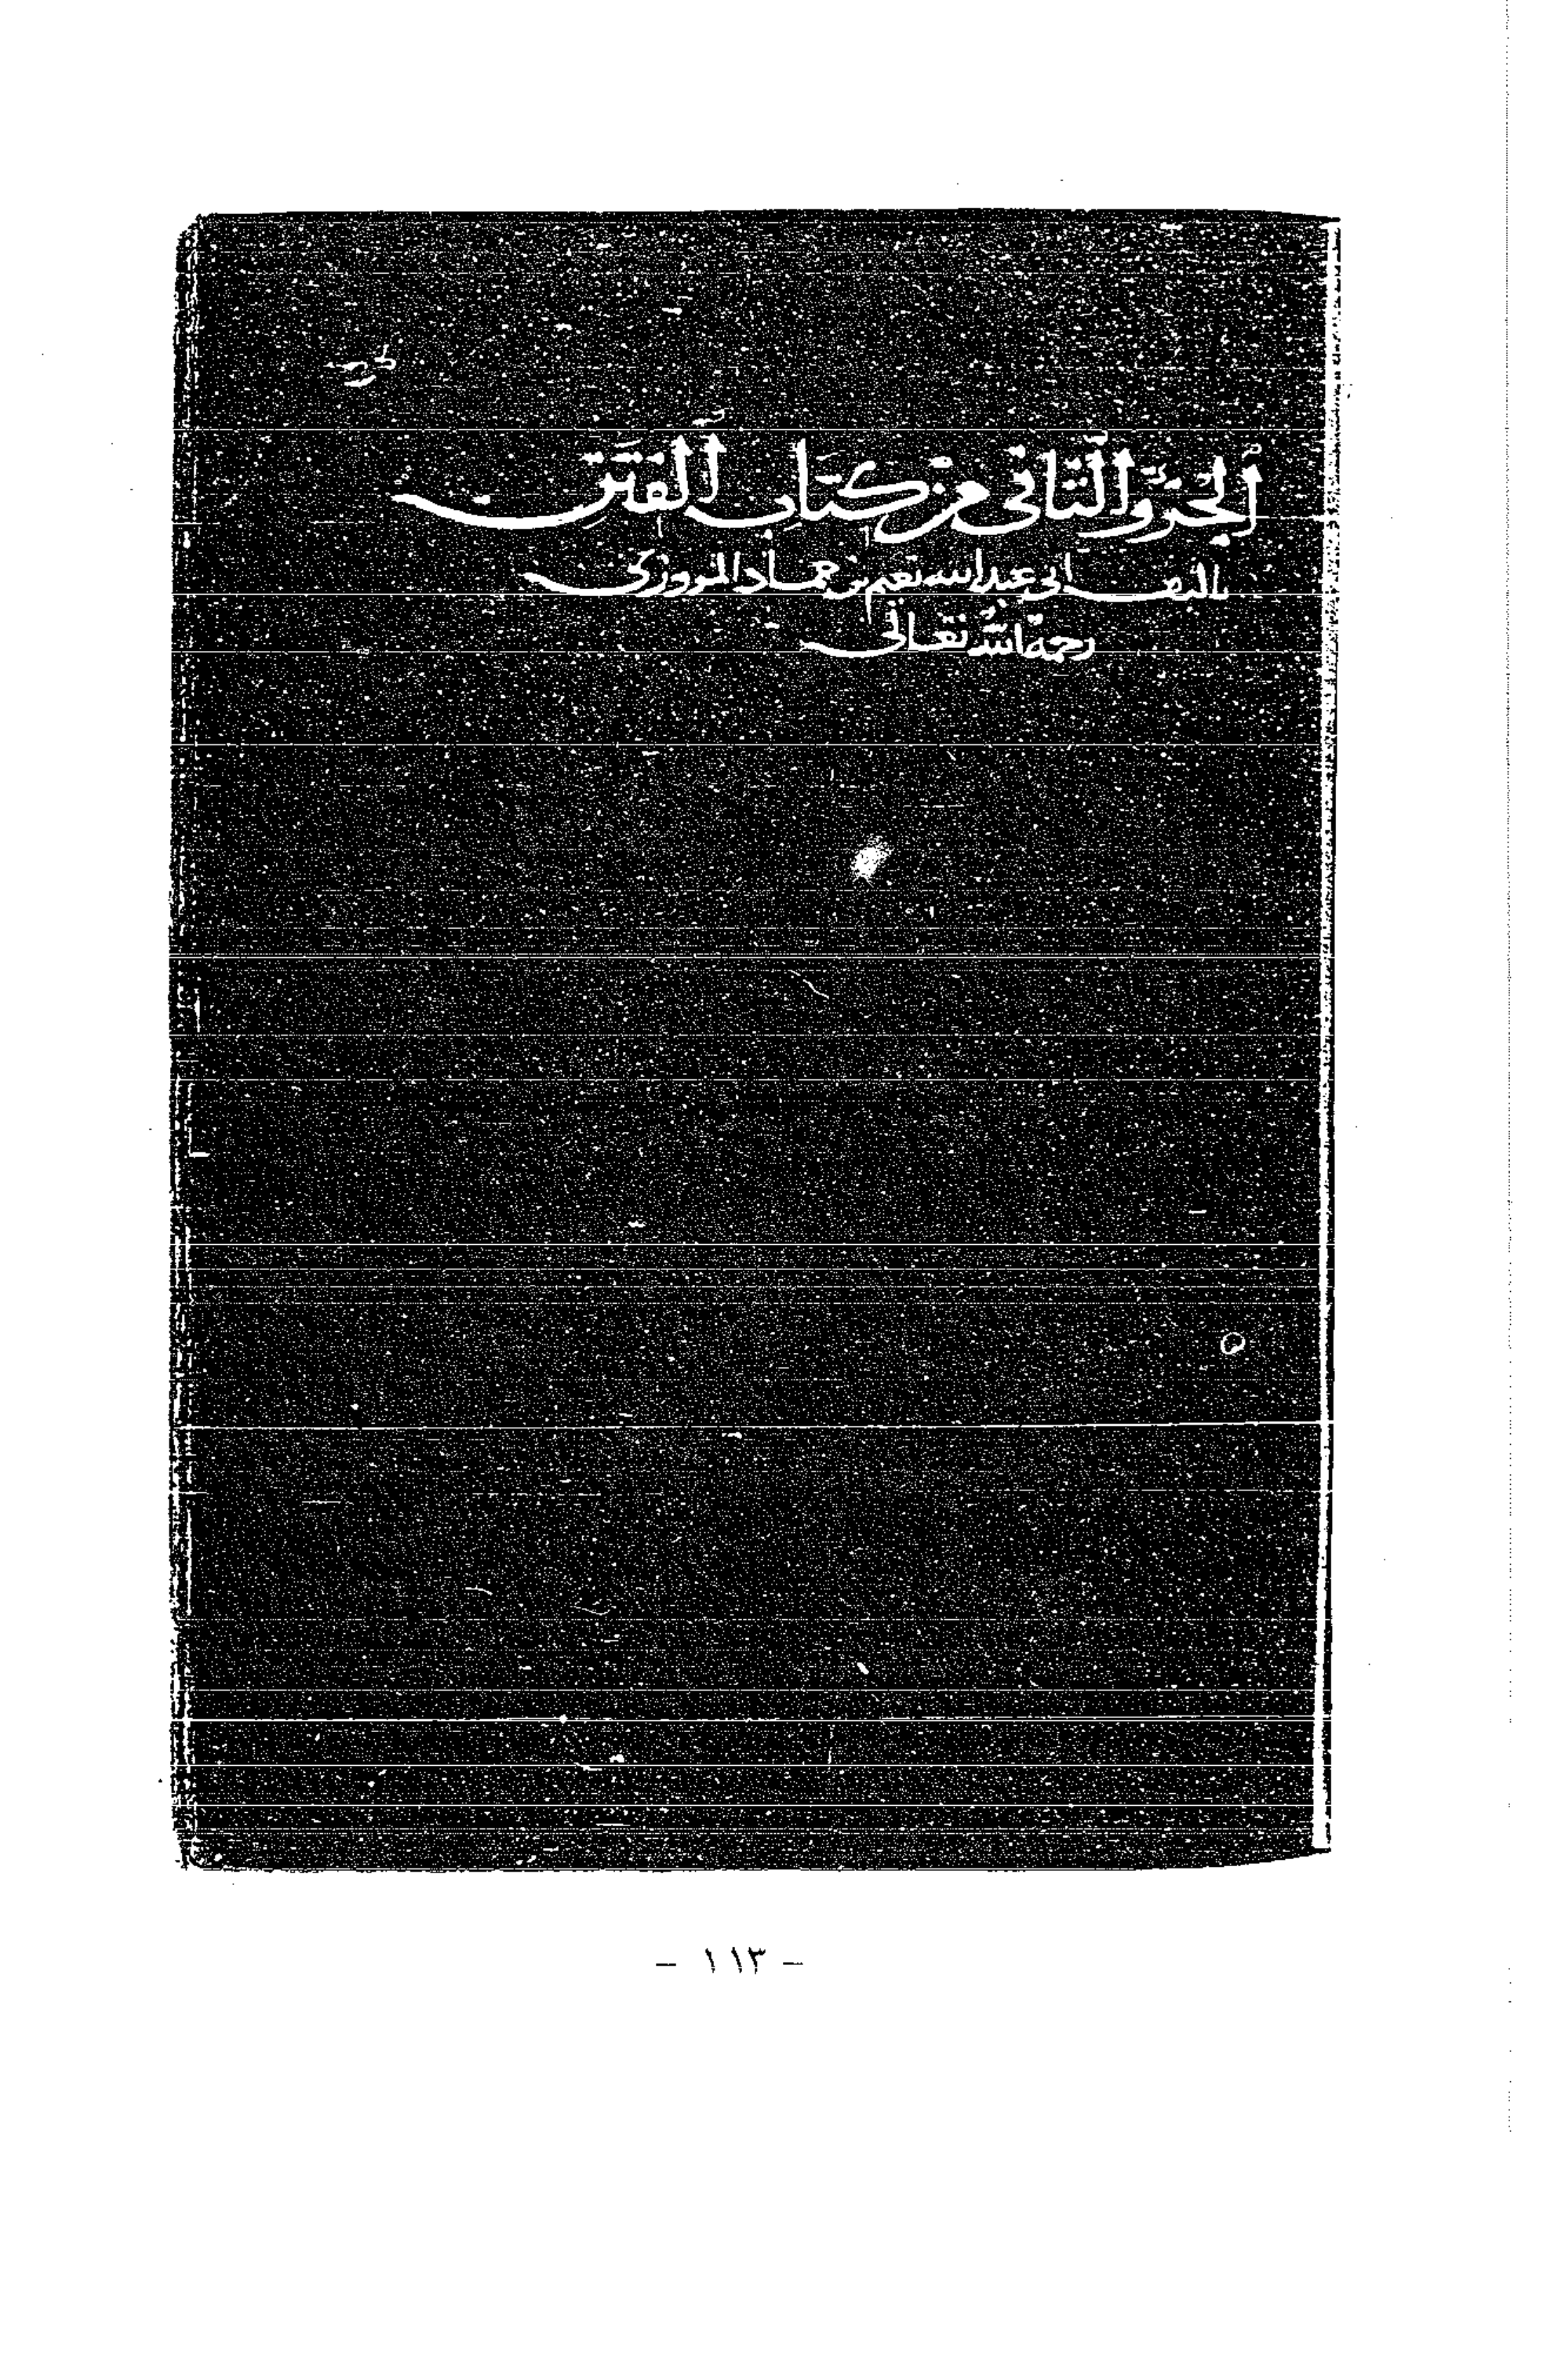 ألجزؤ الثاني من كتاب ألفتن
تاليف ابى عبد الله نعيم بن حماد المروزى
رحمه الله تعالى
- ١١٣ -